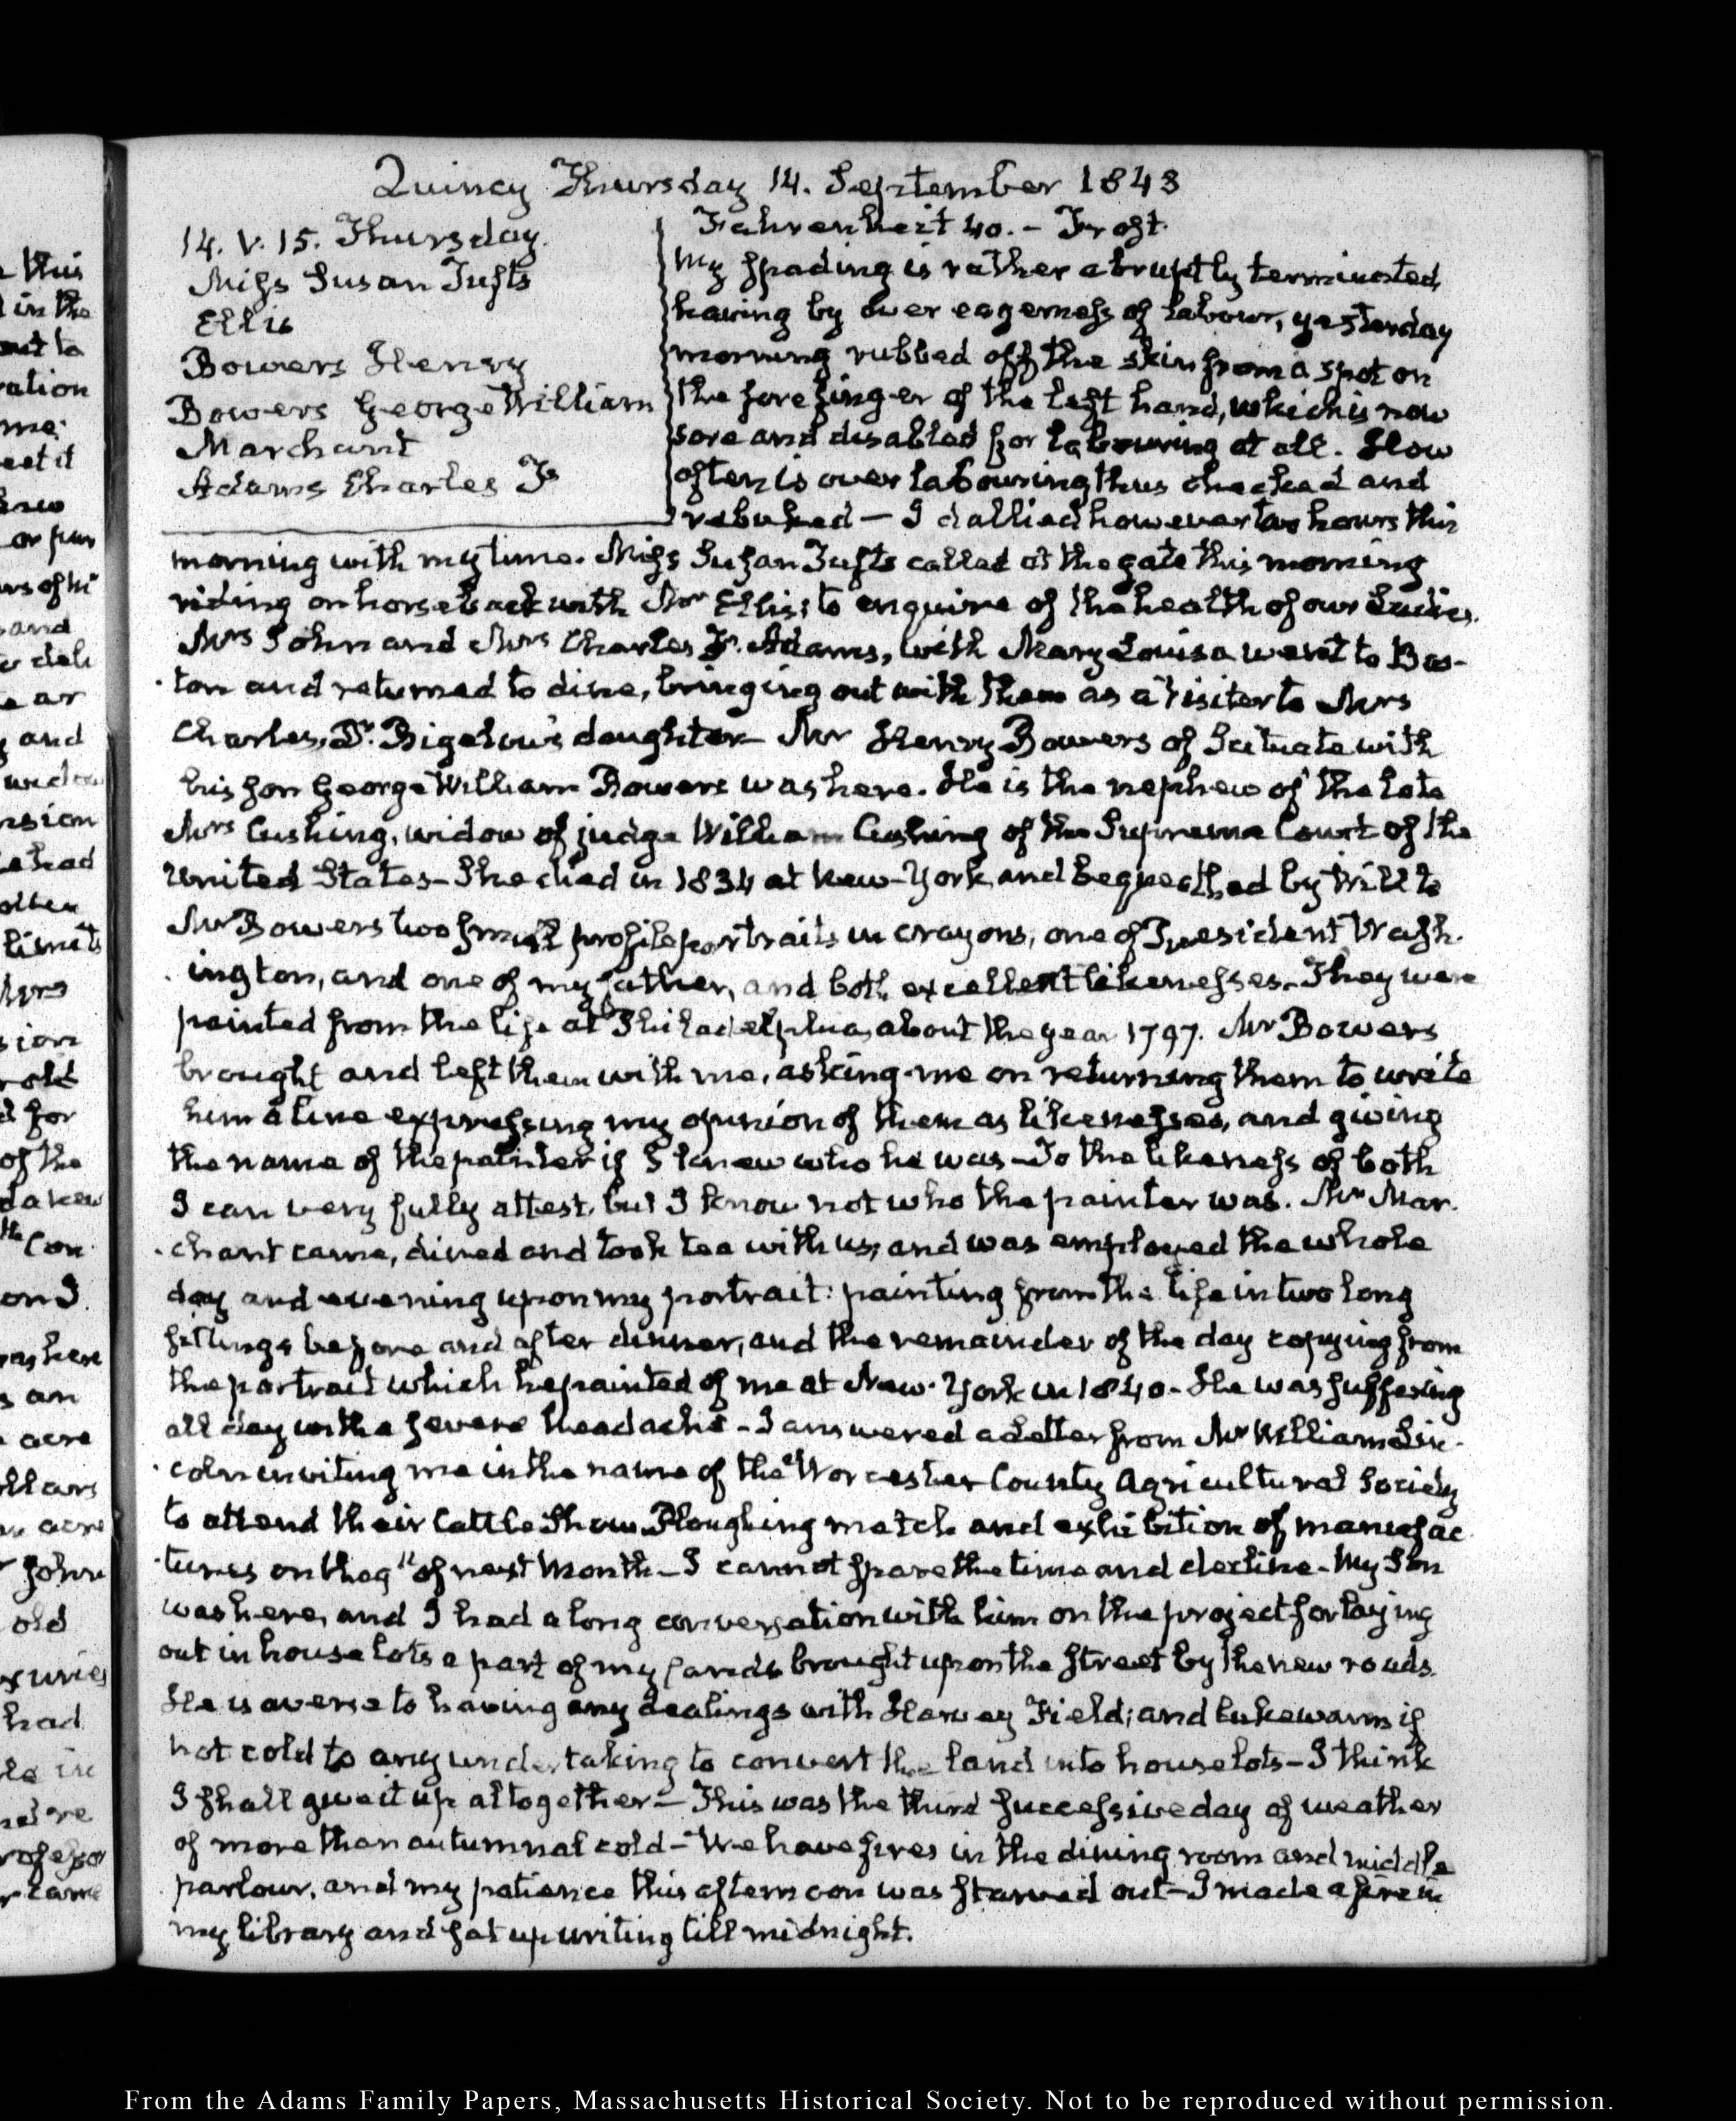 Quincy Thursday 14. September 1843
14. V. 15. Thursday.
Miss Susan Tufts
Ellis
Bowers Henry
Bowers George William
Marchant
Adams Charles F
Fahrenheit 40. – Frost.
My spading is rather abruptly terminated,
having by over eagerness of labour, yesterday
morning rubbed off the skin from a spot on
the fore finger of the left hand, which is now
sore and disabled for labouring at all. How
often is over labouring thus checked and
rebuked — I dallied however two hours this
morning with my time. Miss Susan Tufts called at the gate this morning
riding on horseback with Mr Ellis; to enquire of the health of our Ladies.
Mrs John and Mrs Charles F. Adams, with Mary Louisa went to Bos-
ton and returned to dine, bringing out with them as a visiter to Mrs
Charles, Dr. Bigelow's daughter – Mr Henry Bowers of Scituate with
his son George William Bowers was here. He is the nephew of the late
Mrs Cushing, widow of judge William Cushing of the Supreme Court of the
United States – She died in 1834 at New-York, and bequeathed by Will to
Mr Bowers two small profile portraits in crayons, one of President Wash-
ington, and one of my father, and both excellent likenesses. They were
painted from the life at Philadelphia, about the year 1797. Mr Bowers
brought and left them with me, asking me on returning them to write
him a line expressing my opinion of them as likenesses, and giving
the name of the painter if I knew who he was – To the likeness of both
I can very fully attest, but I know not who the painter was. Mr Mar-
chant came, dined and took tea with us; and was employed the whole
day and evening upon my portrait: painting from the life in two long
sittings before and after dinner, and the remainder of the day copying from
the portrait which he painted of me at New-York in 1840 – He was suffering
all day with a severe headache – I answered a Letter from Mr William Lin-
coln inviting me in the name of the Worcester County Agricultural Society
to attend their Cattle Show Ploughing match and exhibition of manufac-
tures on the 9th of next Month – I cannot spare the time and decline. My Son
was here, and I had a long conversation with him on the project for laying
out in house lots a part of my lands brought upon the street by the new roads.
He is averse to having any dealings with Harvey Field; and lukewarm if
not cold to any undertaking to convert the land into house lots – I think
I shall give it up altogether – This was the third successive day of weather
of more than autumnal cold – We have fires in the dining room and middle
parlour, and my patience this afternoon was starved out – I made a fire in
my library and sat up writing till midnight.
From the Adams Family Papers, Massachusetts Historical Society. Not to be reproduced without permission.